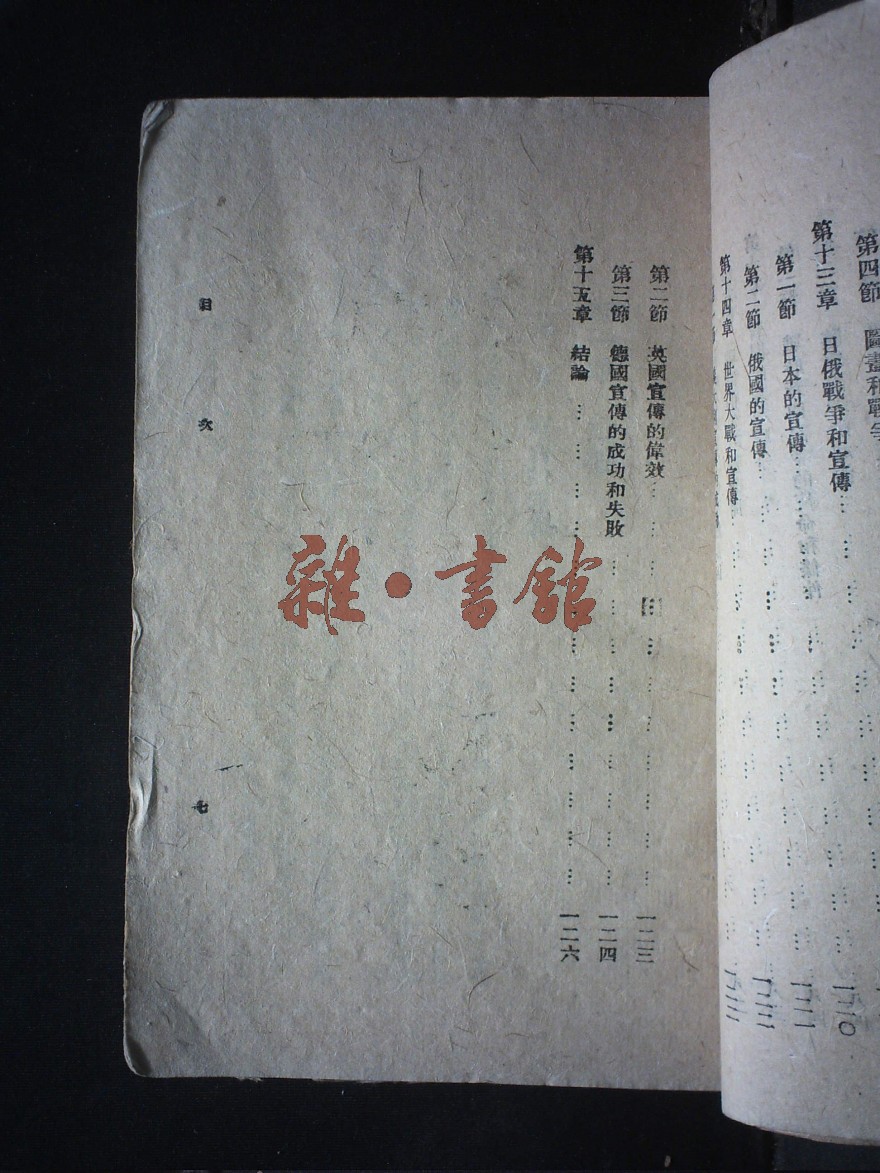 第四節 圖畫和戰爭
第十三章 日俄戰爭和宣傳 … … … … … … 一二〇
第一節 日本的宣傳 … … … … … … 一二一
第二節 俄國的宣傳 … … … … … … 一二二
第十四章 世界大戰和宣傳 … … … … … … 一二二
第二節 英國宣傳的偉效 … … … … … … 一二三
第三節 德國宣傳的成功和失敗 … … … … … … 一二四
第十五章 結論 … … … … … … 一二六
目次
七
雜·書館